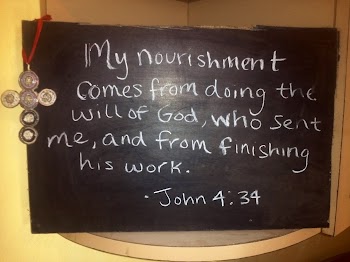 My nourishment
comes from doing the
will of God, who sent
me, and from finishing
his work.
- John 4:34